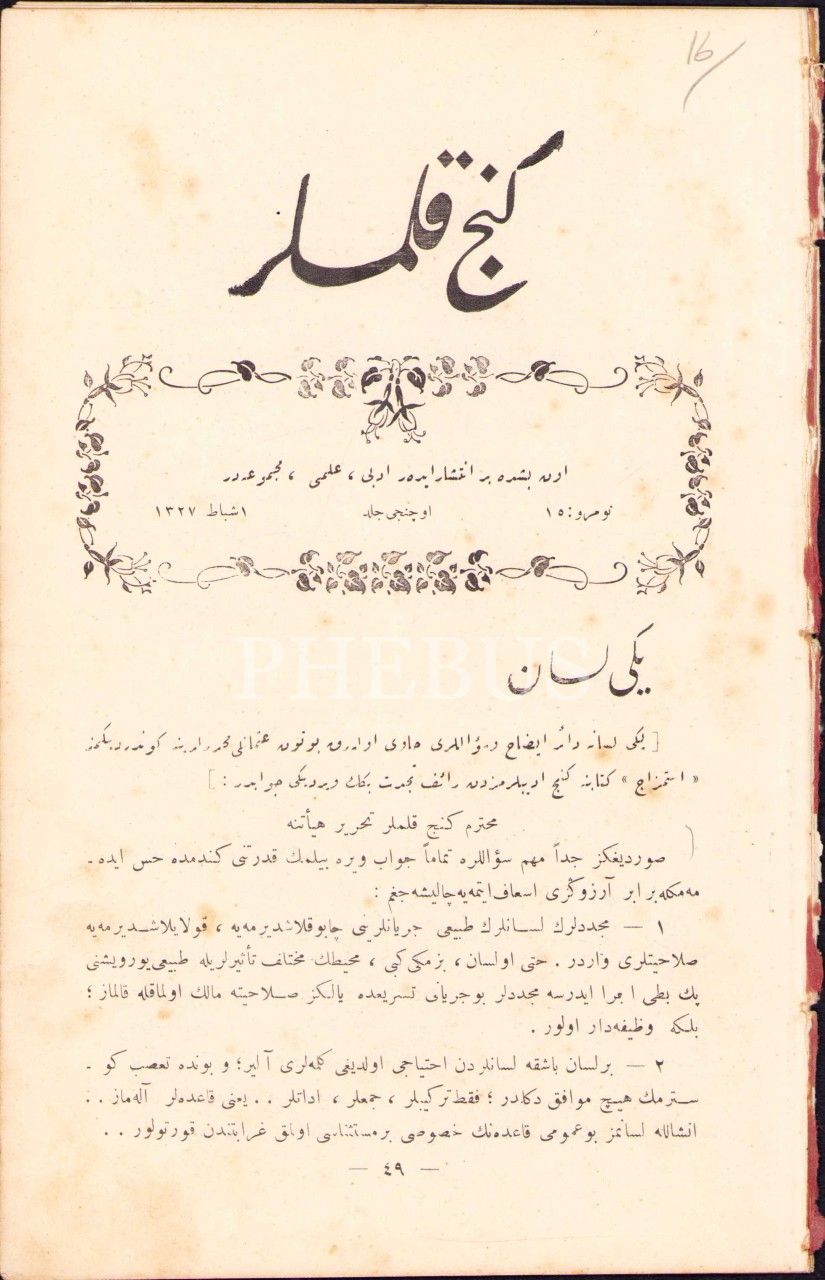 16
كنج قلملر
اون بشده بر انتشار ايدەر ادبی ، علمی ، مجموعەدر
نومرو : ١٥ اوچنجی جلد ١ شباط ١٣٢٧
يكی لسان
PHEBUS
[ يكی لسانه دائر ايضاح و سؤاللری حاوی اولەرق بوتون عثمانلی محررلرينه كوندرديكمز
« استمزاج » كتابنه كنج اديبلرمزدن رائف نجدت بكك ويرديكی جوابدر : ]
محترم كنج قلملر تحرير هيأتنه
صورديغكز جداً مهم سؤاللره تماماً جواب ويره بيلمك قدرتنی كندمده حس ايده ـ
مەمكله برابر آرزوڭزی اسعاف ايتمەيه چاليشەجغم :
١ — مجددلرك لسانلرك طبيعی جريانلرينی چابوقلاشديرمەيه ، قولايلاشديرمەيه
صلاحيتلری واردر . حتی او لسان ، بزمكی كبی ، محيطك مختلف تأثيرلريله طبيعی يورويشنی
پك بطی اجرا ايدرسه مجددلر بو جريانی تسريعده يالكز صلاحيته مالك اولماقله قالماز ؛
بلكه وظيفەدار اولور .
٢ — بر لسان باشقه لسانلردن احتياجی اولديغی كلمەلری آلير ؛ و بونده تعصب كو ـ
سترمك هيچ موافق دكلدر ؛ فقط تركيبلر ، جمعلر ، اداتلر . . يعنی قاعدەلر آلەماز . .
انشاالله لسانمز بو عمومی قاعدەنك خصوصی بر مستثناسی اولمق غرابتندن قورتولور . .
— ٤٩ —